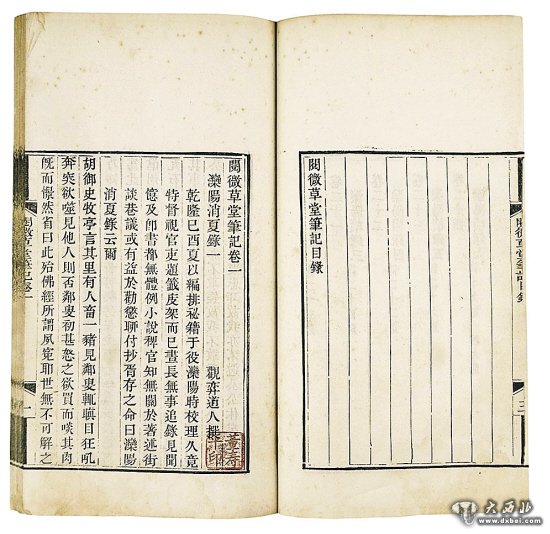 閱微草堂筆記目錄
三
閱微草堂筆記目錄
閱微草堂筆記卷一
灤陽消夏錄一 觀弈道人撰
乾隆己酉夏以編排祕籍于役灤陽時校理久竟
特督視官吏題籤庋架而已晝長無事追錄見聞
憶及即書都無體例小說稗官知無關於著述街
談巷議或有益於勸懲聊付抄胥存之命曰灤陽
消夏錄云爾
胡御史牧亭言其里有人畜一豬見鄰叟輒瞋目狂吼
奔突欲噬見他人則否鄰叟初甚怒之欲買而啖其肉
旣而憬然省曰此殆佛經所謂夙冤耶世無不可解之
閱微草堂筆記卷一
一
大西北
www.dxbei.com